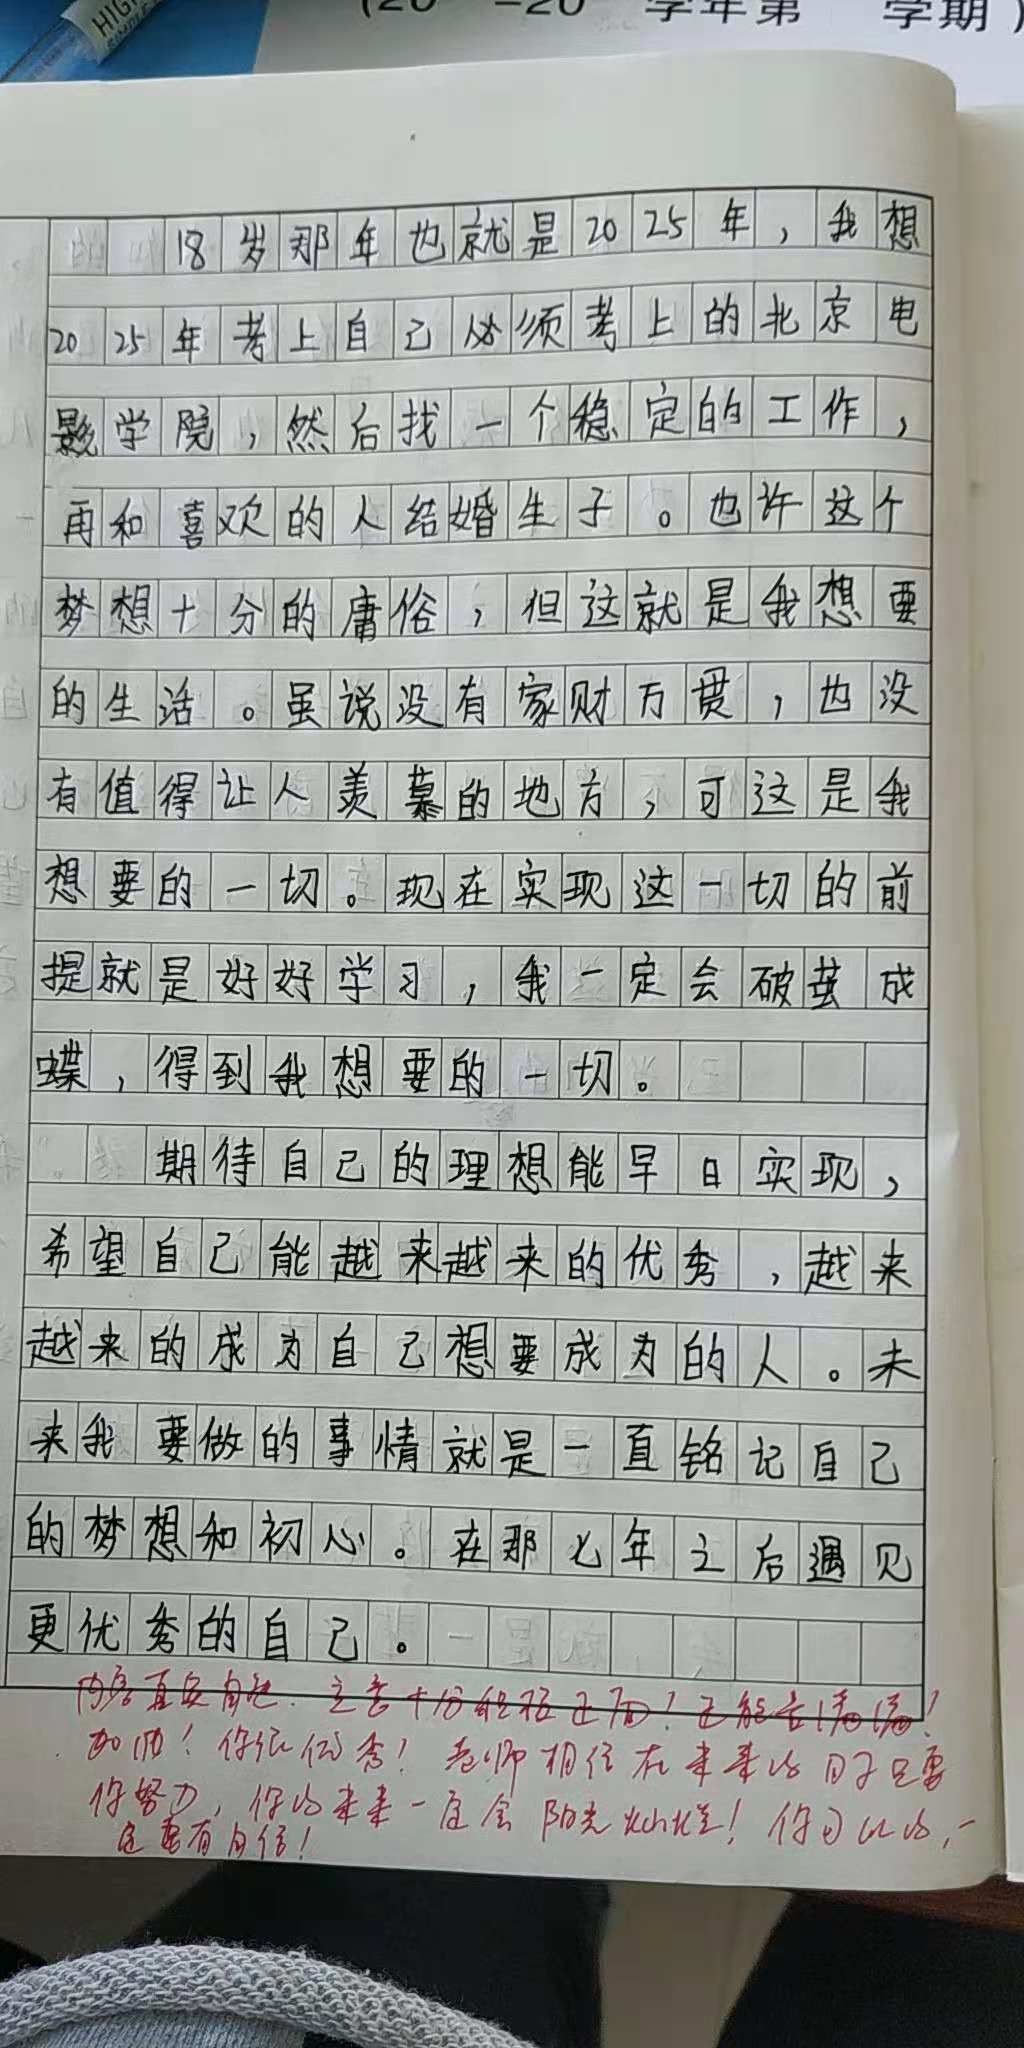 HIGH
(20 -20 学年第 学期)
18岁那年也就是2025年，我想
2025年考上自己必须考上的北京电
影学院，然后找一个稳定的工作，
再和喜欢的人结婚生子。也许这个
梦想十分的庸俗，但这就是我想要
的生活。虽说没有家财万贯，也没
有值得让人羡慕的地方，可这是我
想要的一切。现在实现这一切的前
提就是好好学习，我一定会破茧成
蝶，得到我想要的一切。
期待自己的理想能早日实现，
希望自己能越来越来的优秀，越来
越来的成为自己想要成为的人。未
来我要做的事情就是一直铭记自己
的梦想和初心。在那七年之后遇见
更优秀的自己。
内容真实自然．立意十分积极正面！正能量满满！
加油！你很优秀！老师相信在未来的日子只要
你努力，你的未来一定会阳光灿烂！你可以的，一
定要有自信！